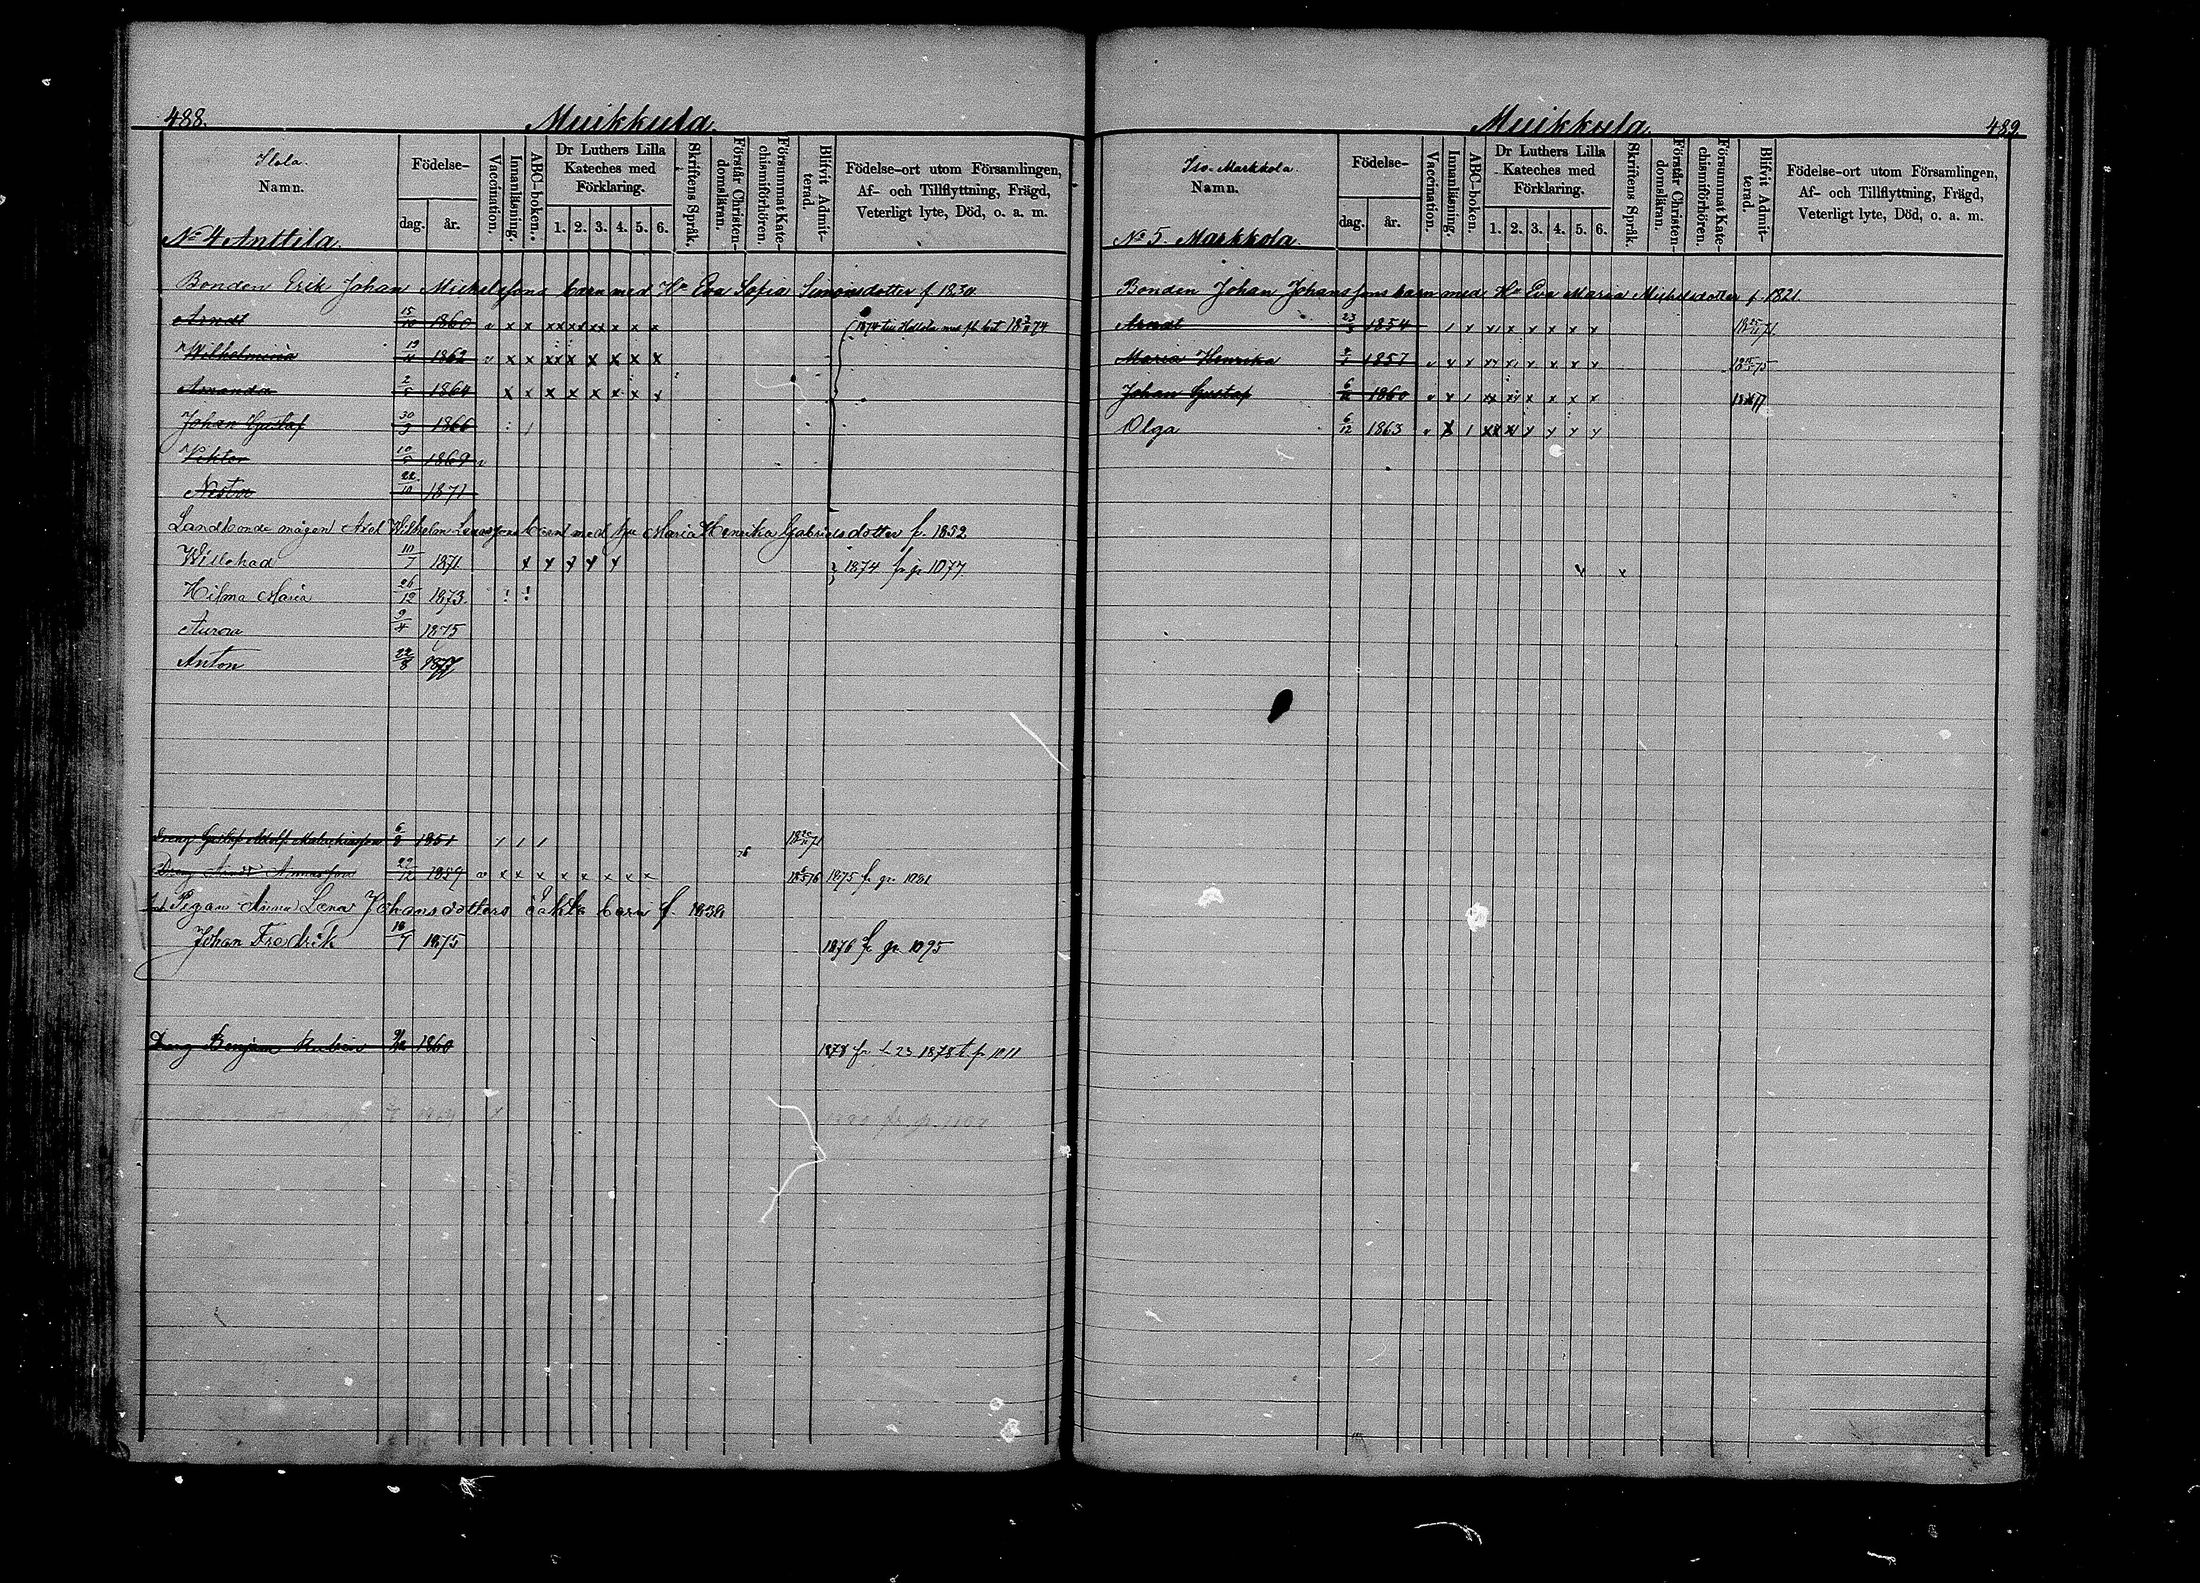 488. Muikkula
Ilola.
Namn.
Födelse-
dag. år.
Vaccination.
Innanläsning.
ABC-boken.
Dr Luthers Lilla Kateches med Förklaring.
1. 2. 3. 4. 5. 6.
Skriftens Språk.
Förstår Christendomsläran.
Försummat Katechismiförhören.
Blifvit Admitterad.
Födelse-ort utom Församlingen,
Af- och Tillflyttning, Frägd,
Veterligt lyte, Död, o. a. m.
No 4 Anttila.
Bonden Erik Johan Michelssons barn med Hu Eva Sofia Simonsdotter f. 1830
Arndt 15/10 1860 1874 till Hollola
Wilhelmina 1862
Amanda 1864
Johan Gustaf 30/3 1866
Viktor 1869
Nestor 22/10 1871
Landbonde mågen Axel Wilhelm barn med hu Maria Henrika Gabrielsdotter f. 1852
Willehad 10/7 1871 1874 fr p 1077
Hilma Maria 26/12 1873
Aurora 9/4 1875
Anton 22/8 1877
Dreng Gustaf Adolf 1851
Dreng 22/12 1859 1875 fr p. 1081
Pigan Anna Lena Johansdotters oäkta barn f.
Johan Fredrik 18/7 1875 1876 fr p. 1095
Dreng Benjam Rubin 1860 1878 fr 1878 t p 1011
Muikkula 489
Iso-Markkola
Namn.
Födelse-
dag. år.
Vaccination.
Innanläsning.
ABC-boken.
Dr Luthers Lilla Kateches med Förklaring.
1. 2. 3. 4. 5. 6.
Skriftens Språk.
Förstår Christendomsläran.
Försummat Katechismiförhören.
Blifvit Admitterad.
Födelse-ort utom Församlingen,
Af- och Tillflyttning, Frägd,
Veterligt lyte, Död, o. a. m.
No 5. Markkola
Bonden Johan Johanssons barn med Hu Eva Maria Michelsdotter f. 1821
Arndt 23/3 1854
Maria Henrika 1857
Johan Gustaf 1860
Olga 6/12 1863